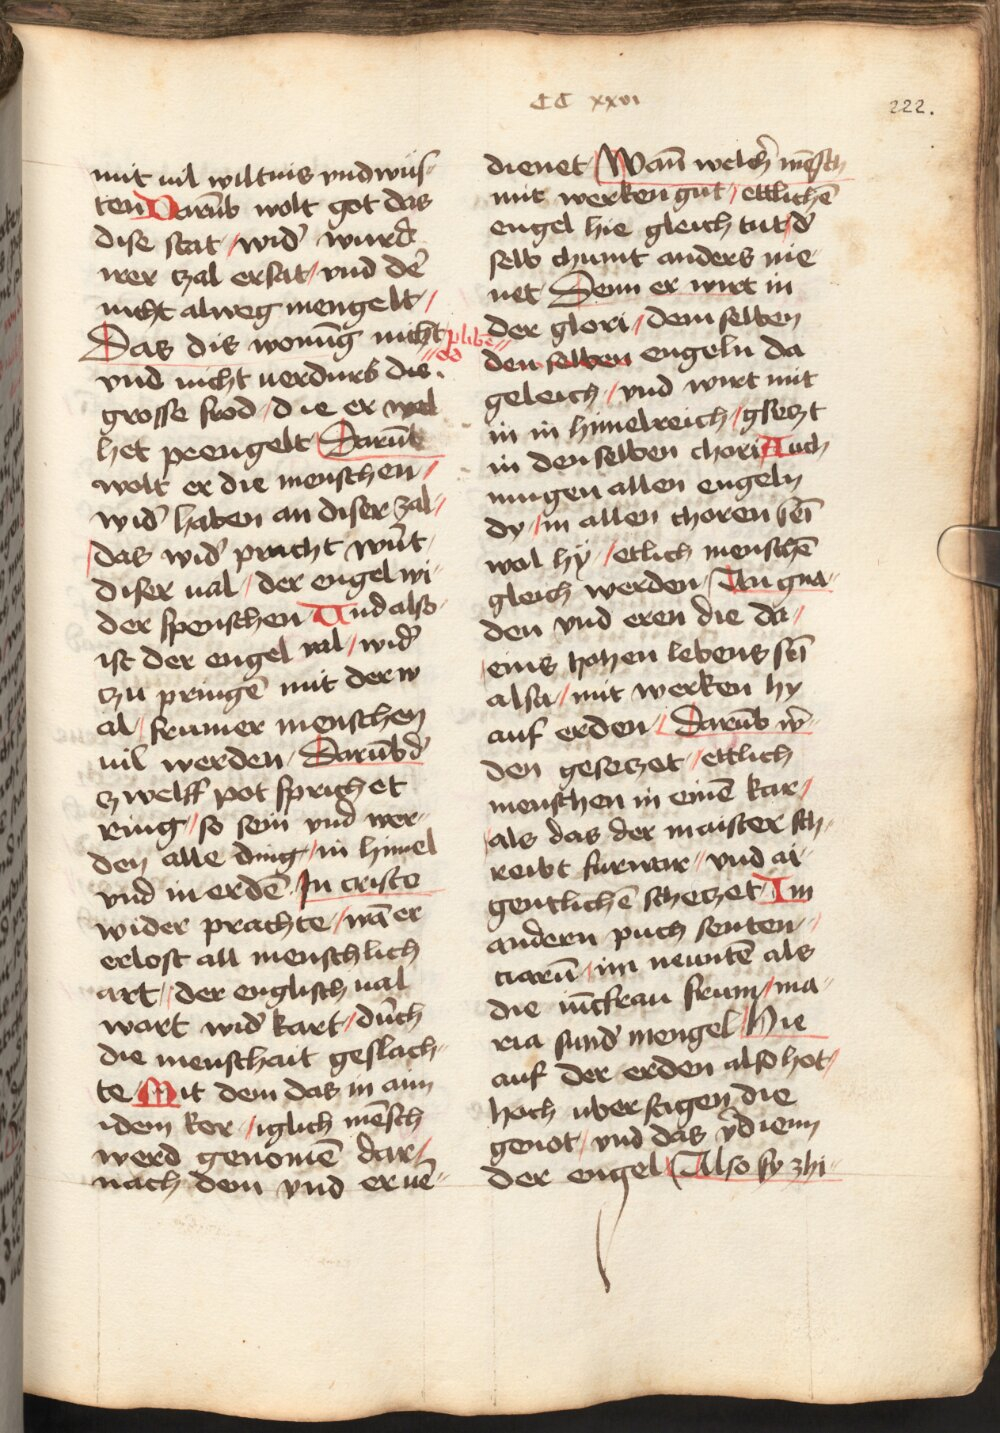 CC xxvi
222.
mit uil wiltnis vnd wüs-
ten Darūb wolt got das
dise stat / wid̄ wurd
irer zal ersat / vnd dē
nicht alweg mengelt /
Das dis wonūg nicht plibē
öd
vnd nicht uerdurb die
grosse frod / die er wol
het prengelt Darūb
wolt er die menschen /
wid̄ haben an diser zal /
das wid̄ pracht wūrt
diser ual / der engel wi-
der spenschen Vnd also
ist der engel val / wid̄
zu pringē mit der w
al / frumer menschen
uil werden / Darūb d̄
zwelff pot sprichet
ring / so sein vnd wer-
den alle ding / in himel
vnd in erdē In criste
wider prachte / wā er
erlost all menschlich
art / der englisch ual
wart wid̄ kart / dūch
die menschait geslach-
te Mit dem das in aim
idem kor / iglich mēsch
werd genomē dar /
nach dem vnd er uē-
dienet Wañ welch̄ mēsch
mit werken gut / ettlichē
engel hie gleich tut / d̄
selb chumt anders nie
net Denn er wirt in
der glori / dem selben
den selben engeln da
geleich / vnd wirt mit
in in himelreich / gsezt
in den selben chori Auch
mugen allen engeln
dy / in allen choren sēī
wol hy / etlich menschē
gleich werden / An gna-
den vnd eren die da /
eins hohen lebens sēī
alsa / mit werken hy
auf erden / Darūb w̄-
den gesezet / ettlich
menschen in einē kar /
als das der maister sch-
reibt furwar / vnd ai-
gentlichē schezet Im
andern puch senten-
ciarū / im neuntē als
die iūcfrau frum / ma-
ria sund̄ mengel Hie
auf der erden also hot /
hoch uberstigen die
genot / vnd das v̄dienn
der engel Also sy zhi-